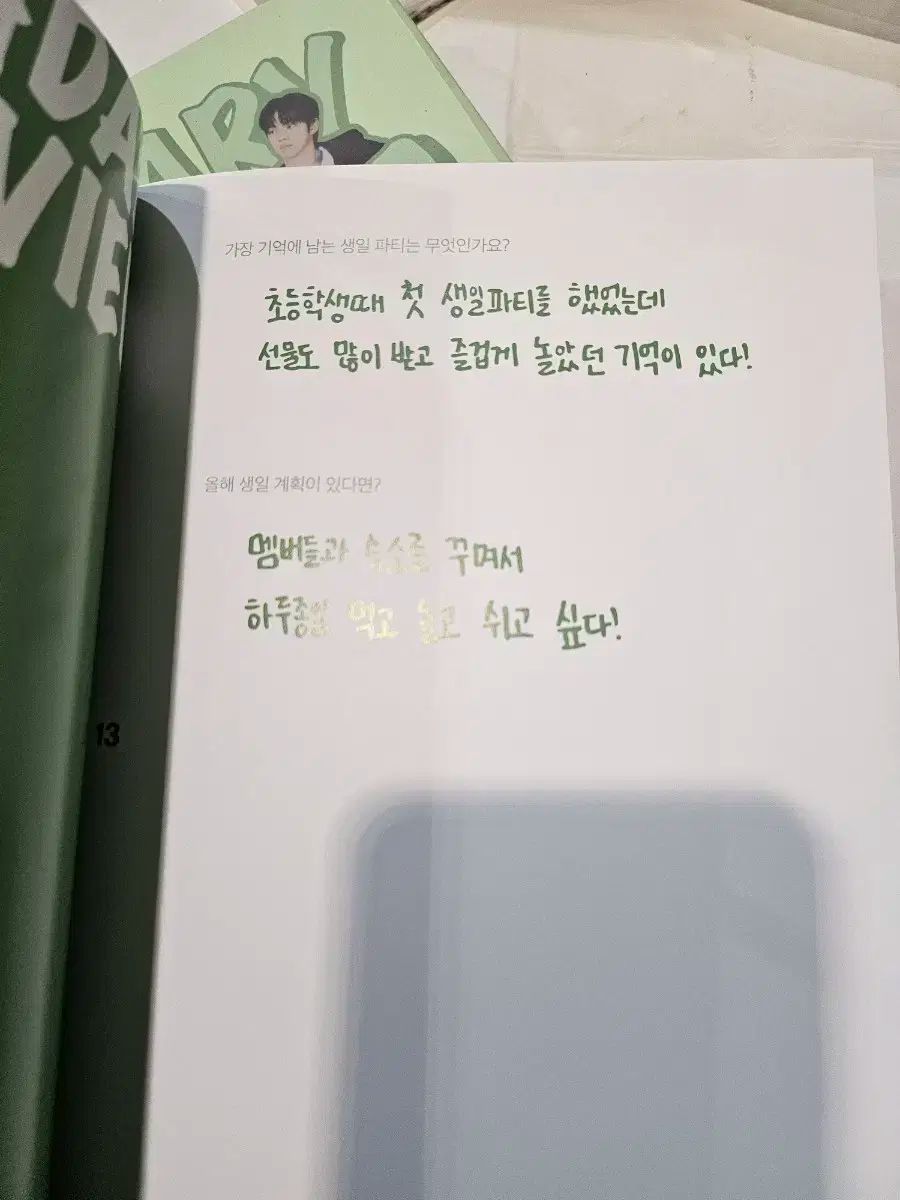 가장 기억에 남는 생일 파티는 무엇인가요?
초등학생때 첫 생일파티를 했었는데
선물도 많이 받고 즐겁게 놀았던 기억이 있다!
올해 생일 계획이 있다면?
멤버들과 숙소를 꾸며서
하루종일 먹고 놀고 쉬고 싶다!
13